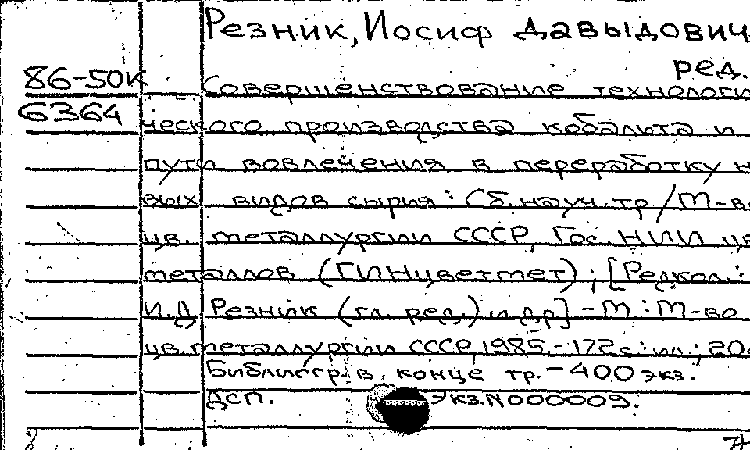 Резник, Иосиф Давыдович
ред.
86-50К Совершенствование технологи
6364 ческого производства кобальта и
пути вовлечения в переработку н
вых видов сырья : Сб. науч. тр / М-во
цв. металлургии СССР, Гос. НИИ цв
металлов (ГИНцветмет) ; [Редкол.:
И.Д Резник (гл. ред.) и др] - М : М-во
цв. металлургии СССР, 1985. - 172 с : ил ; 20
Библиогр. в конце тр. - 400 экз.
ДСП. Экз. N 000009.